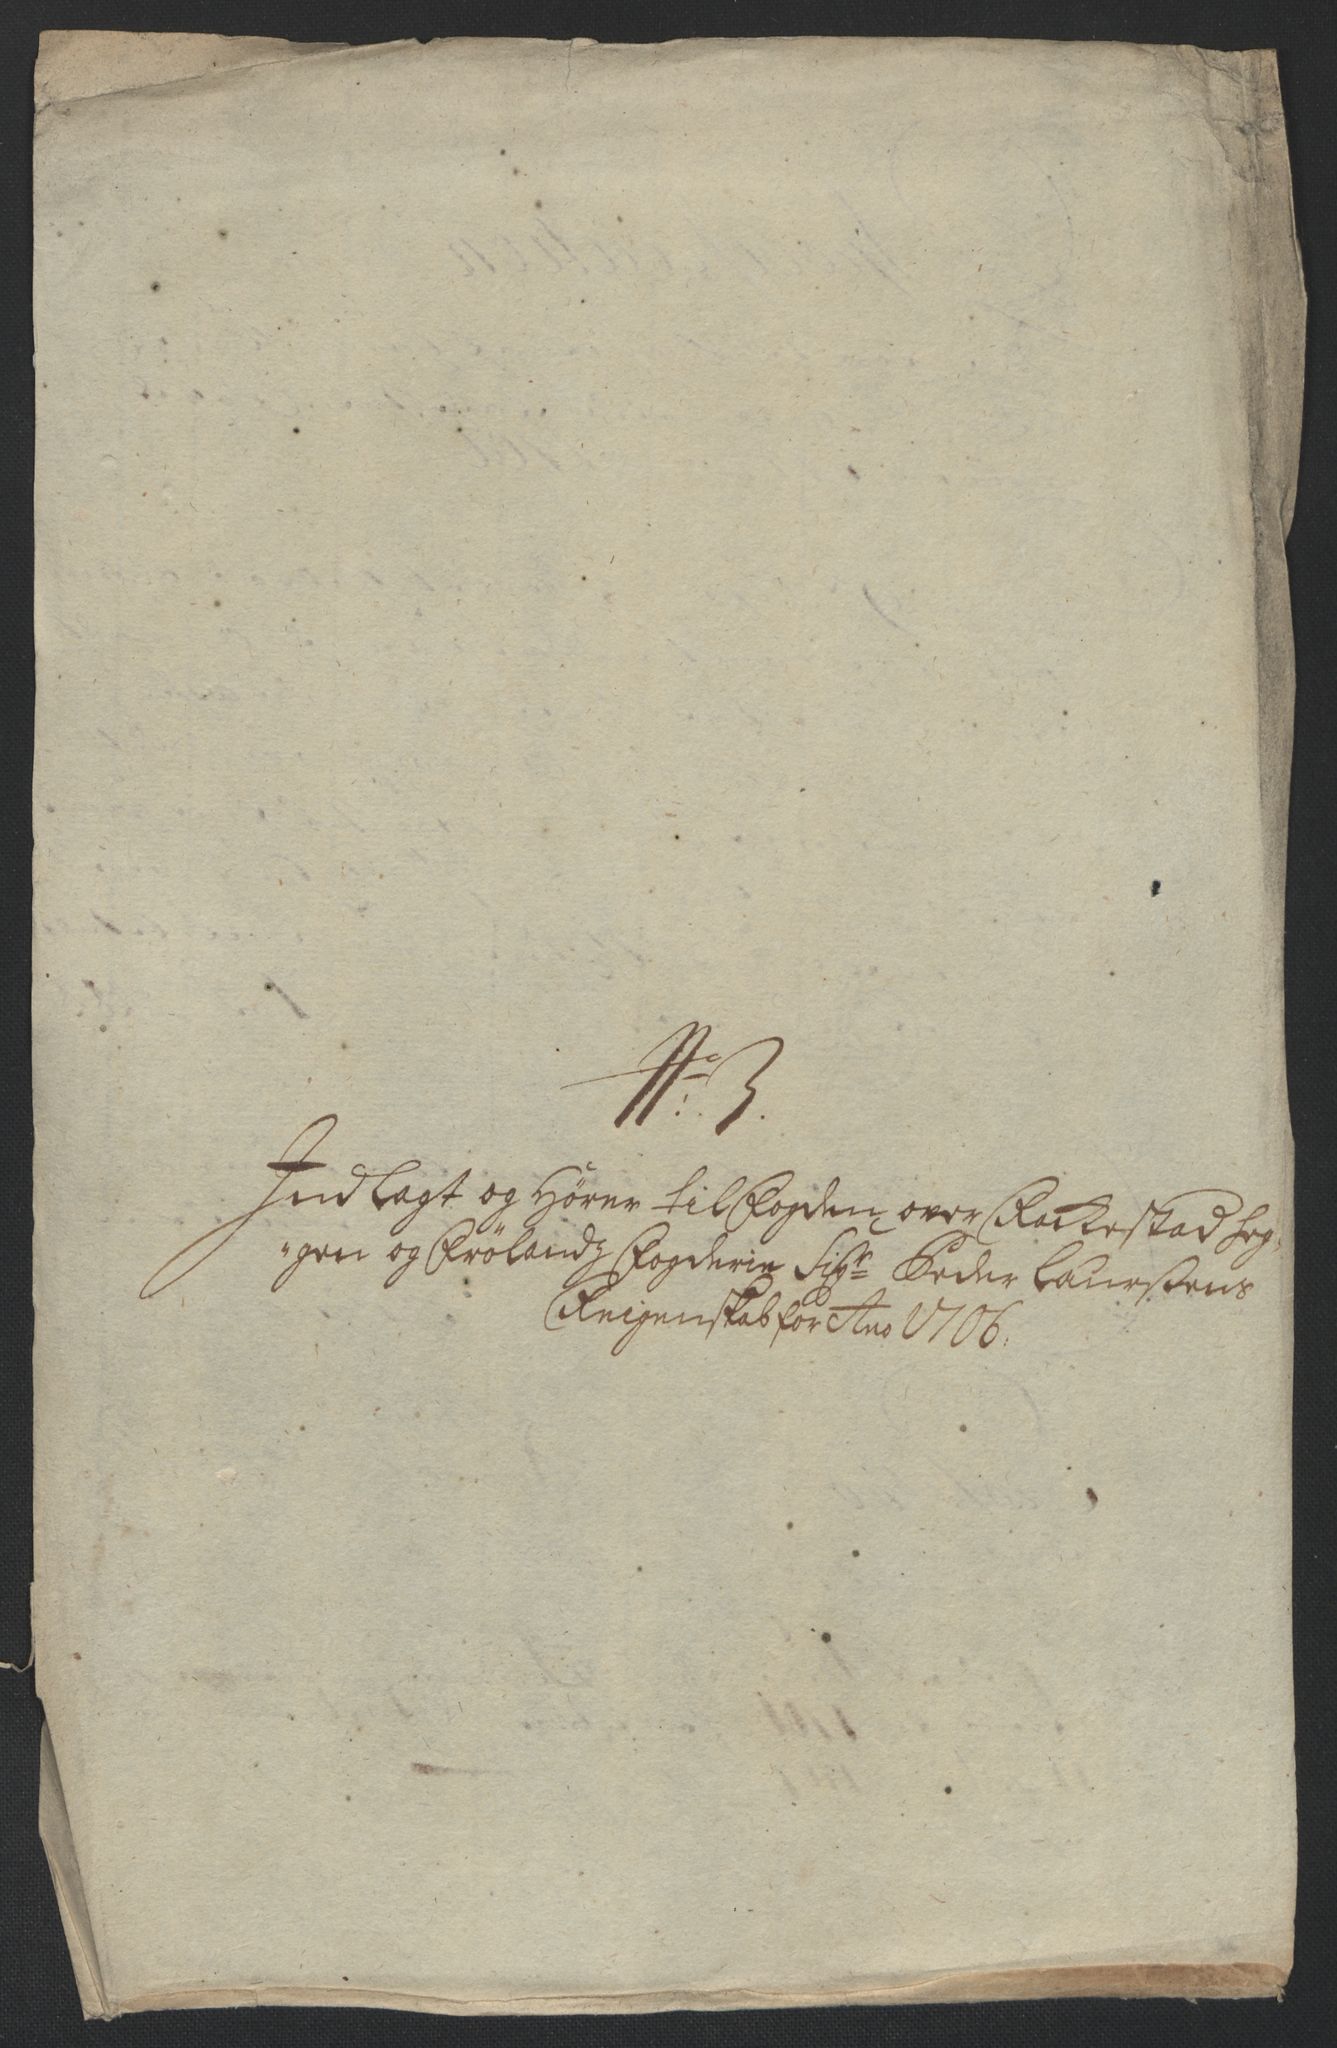 No 3.
Indlagt og Hörer til Fogden over Rackestad, Heg-
"gen og Frölands Fogderie Sigr Peder Laurssens
Reigenskab for Ano 1706.